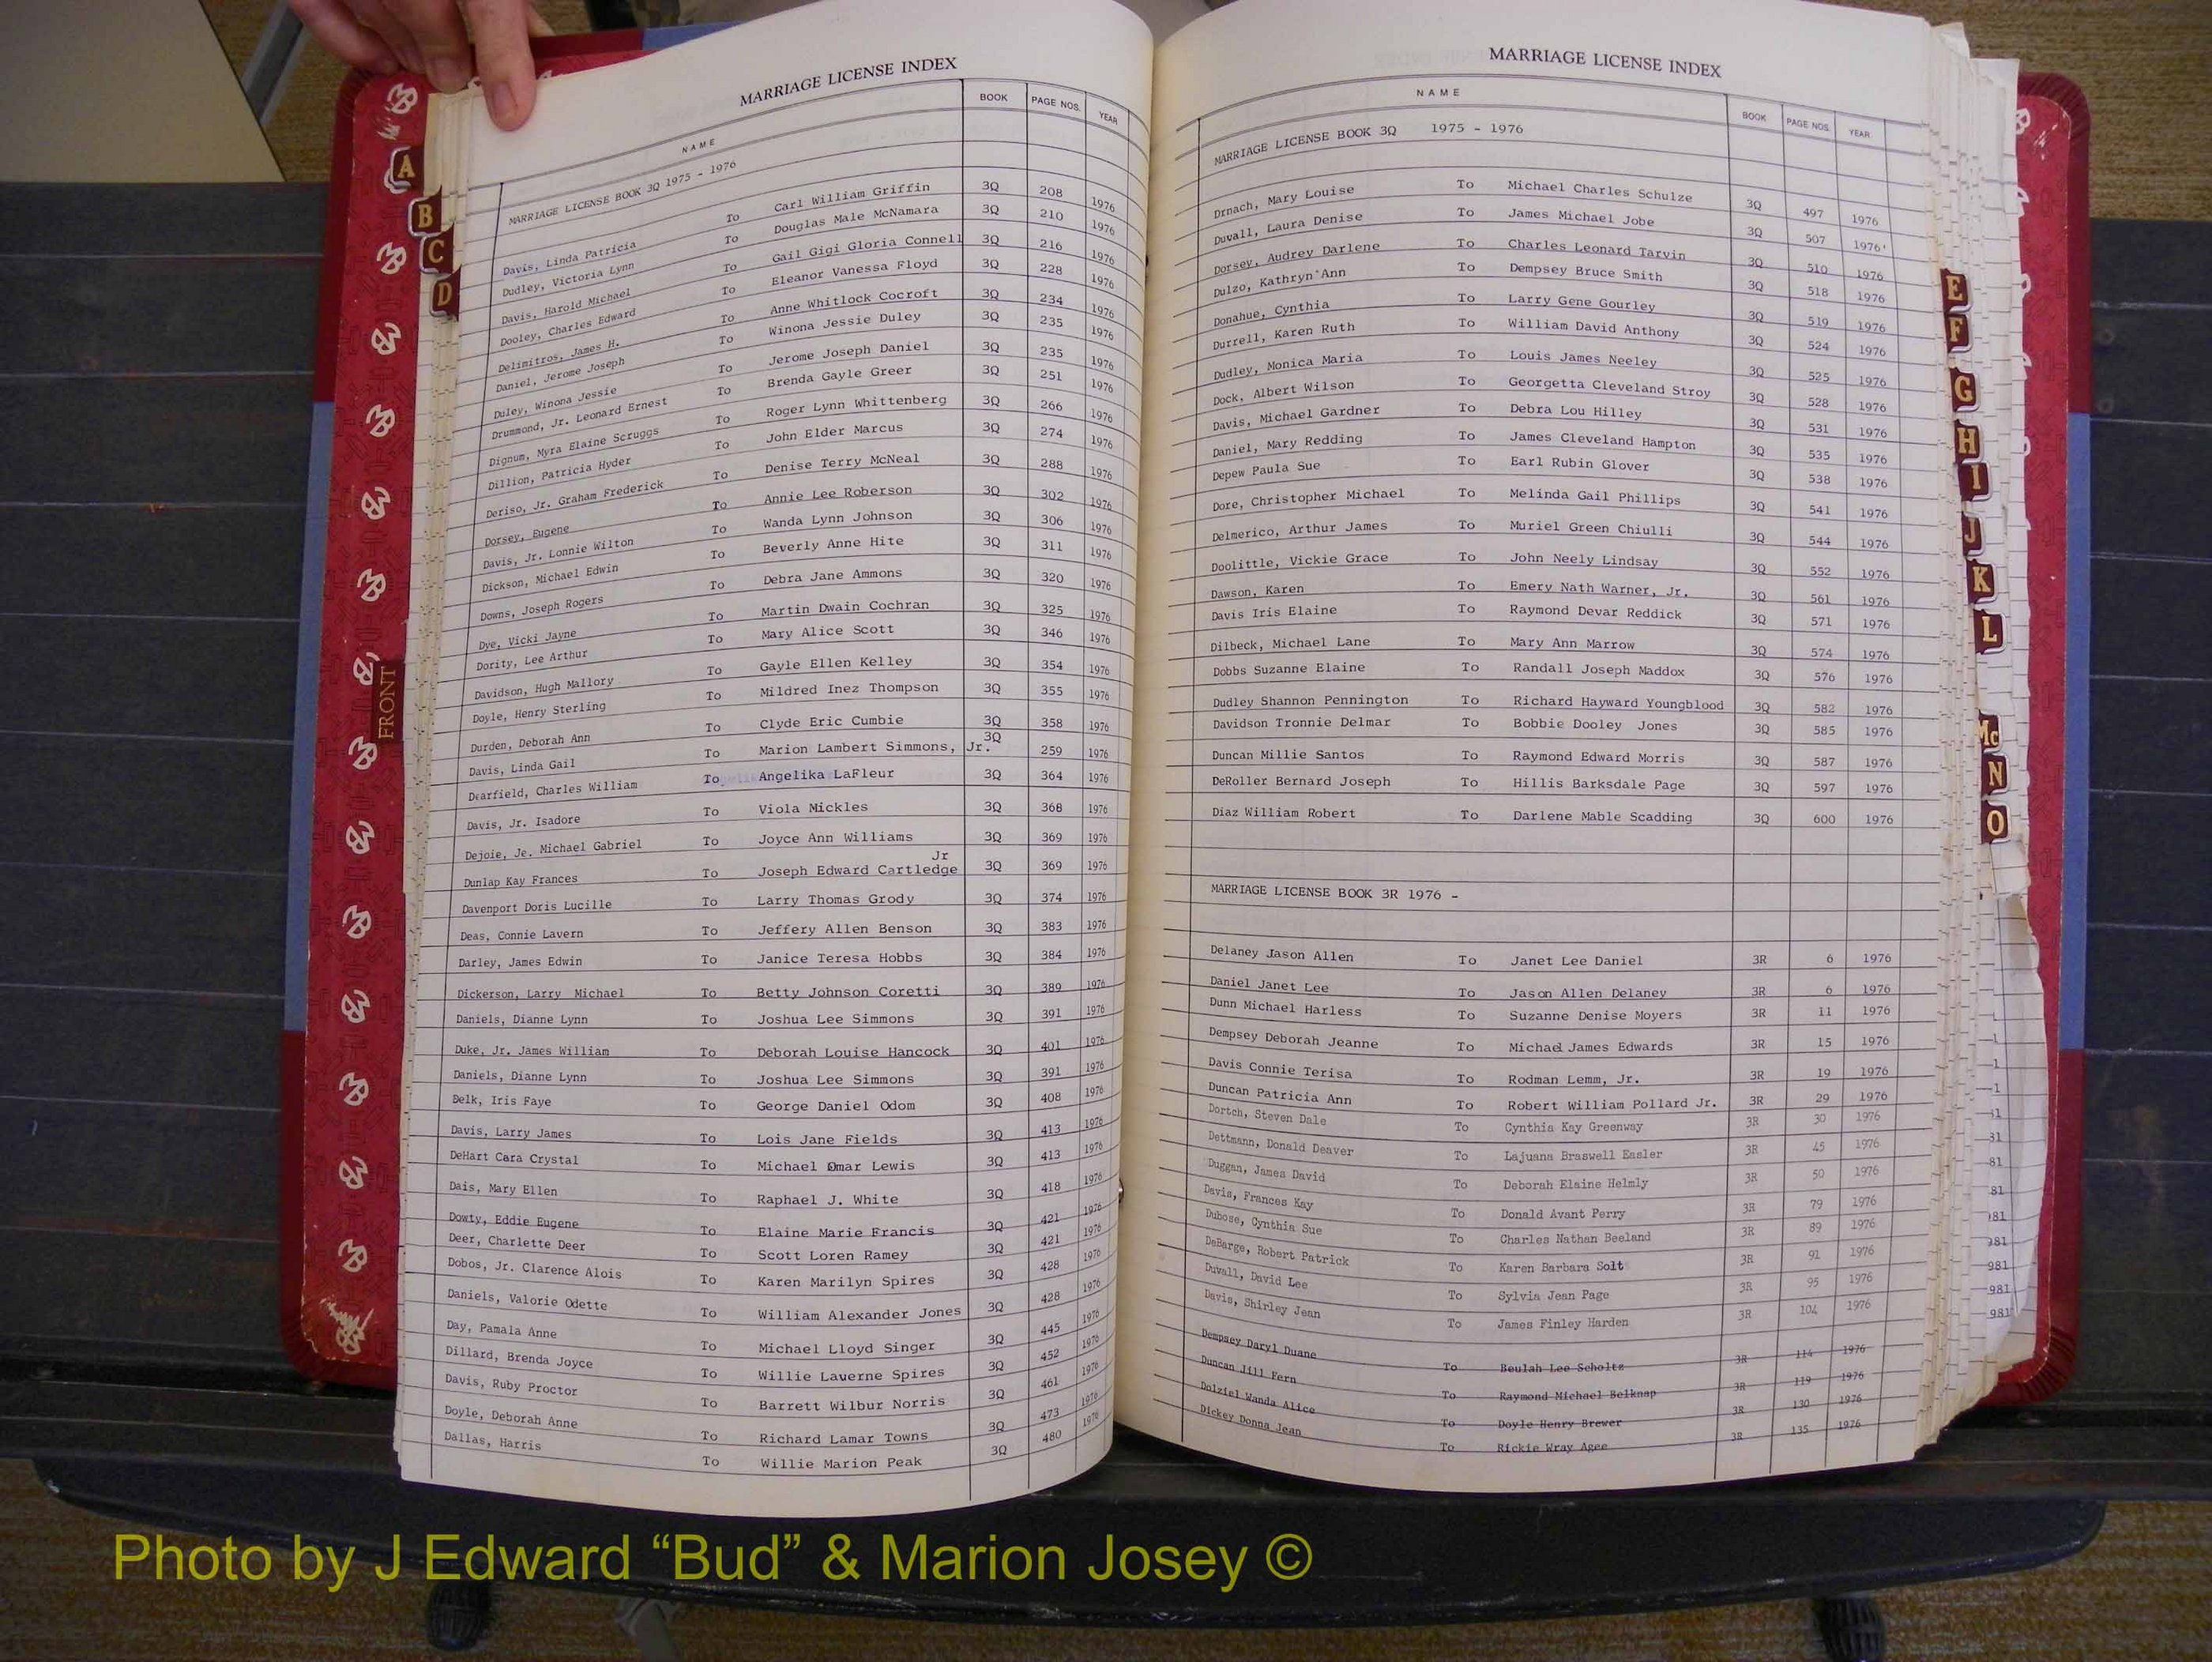 MARRIAGE LICENSE INDEX
NAME BOOK PAGE NOS. YEAR
MARRIAGE LICENSE BOOK 3Q 1975 - 1976
Davis, Linda Patricia To Carl William Griffin 3Q 208 1976
Dudley, Victoria Lynn To Douglas Male McNamara 3Q 210 1976
Davis, Harold Michael To Gail Gigi Gloria Connell 3Q 216 1976
Dooley, Charles Edward To Eleanor Vanessa Floyd 3Q 228 1976
Delimitros, James H. To Anne Whitlock Cocroft 3Q 234 1976
Daniel, Jerome Joseph To Winona Jessie Duley 3Q 235 1976
Duley, Winona Jessie To Jerome Joseph Daniel 3Q 235 1976
Drummond, Jr. Leonard Ernest To Brenda Gayle Greer 3Q 251 1976
Dignum, Myra Elaine Scruggs To Roger Lynn Whittenberg 3Q 266 1976
Dillion, Patricia Hyder To John Elder Marcus 3Q 274 1976
Deriso, Jr. Graham Frederick To Denise Terry McNeal 3Q 288 1976
Dorsey, Eugene To Annie Lee Roberson 3Q 302 1976
Davis, Jr. Lonnie Wilton To Wanda Lynn Johnson 3Q 306 1976
Dickson, Michael Edwin To Beverly Anne Hite 3Q 311 1976
Downs, Joseph Rogers To Debra Jane Ammons 3Q 320 1976
Dye, Vicki Jayne To Martin Dwain Cochran 3Q 325 1976
Dority, Lee Arthur To Mary Alice Scott 3Q 346 1976
Davidson, Hugh Mallory To Gayle Ellen Kelley 3Q 354 1976
Doyle, Henry Sterling To Mildred Inez Thompson 3Q 355 1976
Durden, Deborah Ann To Clyde Eric Cumbie 3Q 358 1976
Davis, Linda Gail To Marion Lambert Simmons, Jr. 3Q 259 1976
Dearfield, Charles William To Angelika LaFleur 3Q 364 1976
Davis, Jr. Isadore To Viola Mickles 3Q 368 1976
Dejoie, Je. Michael Gabriel To Joyce Ann Williams 3Q 369 1976
Jr
Dunlap Kay Frances To Joseph Edward Cartledge 3Q 369 1976
Davenport Doris Lucille To Larry Thomas Grody 3Q 374 1976
Deas, Connie Lavern To Jeffery Allen Benson 3Q 383 1976
Darley, James Edwin To Janice Teresa Hobbs 3Q 384 1976
Dickerson, Larry Michael To Betty Johnson Coretti 3Q 389 1976
Daniels, Dianne Lynn To Joshua Lee Simmons 3Q 391 1976
Duke, Jr. James William To Deborah Louise Hancock 3Q 401 1976
Daniels, Dianne Lynn To Joshua Lee Simmons 3Q 391 1976
Belk, Iris Faye To George Daniel Odom 3Q 408 1976
Davis, Larry James To Lois Jane Fields 3Q 413 1976
DeHart Cara Crystal To Michael Omar Lewis 3Q 413 1976
Dais, Mary Ellen To Raphael J. White 3Q 418 1976
Dowty, Eddie Eugene To Elaine Marie Francis 3Q 421 1976
Deer, Charlette Deer To Scott Loren Ramey 3Q 421 1976
Dobos, Jr. Clarence Alois To Karen Marilyn Spires 3Q 428 1976
Daniels, Valorie Odette To William Alexander Jones 3Q 428 1976
Day, Pamala Anne To Michael Lloyd Singer 3Q 445 1976
Dillard, Brenda Joyce To Willie Laverne Spires 3Q 452 1976
Davis, Ruby Proctor To Barrett Wilbur Norris 3Q 461 1976
Doyle, Deborah Anne To Richard Lamar Towns 3Q 473 1976
Dallas, Harris To Willie Marion Peak 3Q 480 1976
MARRIAGE LICENSE INDEX
NAME BOOK PAGE NOS. YEAR
MARRIAGE LICENSE BOOK 3Q 1975 - 1976
Drnach, Mary Louise To Michael Charles Schulze 3Q 497 1976
Duvall, Laura Denise To James Michael Jobe 3Q 507 1976
Dorsey, Audrey Darlene To Charles Leonard Tarvin 3Q 510 1976
Dulzo, Kathryn Ann To Dempsey Bruce Smith 3Q 518 1976
Donahue, Cynthia To Larry Gene Gourley 3Q 519 1976
Durrell, Karen Ruth To William David Anthony 3Q 524 1976
Dudley, Monica Maria To Louis James Neeley 3Q 525 1976
Dock, Albert Wilson To Georgetta Cleveland Stroy 3Q 528 1976
Davis, Michael Gardner To Debra Lou Hilley 3Q 531 1976
Daniel, Mary Redding To James Cleveland Hampton 3Q 535 1976
Depew Paula Sue To Earl Rubin Glover 3Q 538 1976
Dore, Christopher Michael To Melinda Gail Phillips 3Q 541 1976
Delmerico, Arthur James To Muriel Green Chiulli 3Q 544 1976
Doolittle, Vickie Grace To John Neely Lindsay 3Q 552 1976
Dawson, Karen To Emery Nath Warner, Jr. 3Q 561 1976
Davis Iris Elaine To Raymond Devar Reddick 3Q 571 1976
Dilbeck, Michael Lane To Mary Ann Marrow 3Q 574 1976
Dobbs Suzanne Elaine To Randall Joseph Maddox 3Q 576 1976
Dudley Shannon Pennington To Richard Hayward Youngblood 3Q 582 1976
Davidson Tronnie Delmar To Bobbie Dooley Jones 3Q 585 1976
Duncan Millie Santos To Raymond Edward Morris 3Q 587 1976
DeRoller Bernard Joseph To Hillis Barksdale Page 3Q 597 1976
Diaz William Robert To Darlene Mable Scadding 3Q 600 1976
MARRIAGE LICENSE BOOK 3R 1976 -
Delaney Jason Allen To Janet Lee Daniel 3R 6 1976
Daniel Janet Lee To Jason Allen Delaney 3R 6 1976
Dunn Michael Harless To Suzanne Denise Moyers 3R 11 1976
Dempsey Deborah Jeanne To Michael James Edwards 3R 15 1976
Davis Connie Terisa To Rodman Lemm, Jr. 3R 19 1976
Duncan Patricia Ann To Robert William Pollard Jr. 3R 29 1976
Dortch, Steven Dale To Cynthia Kay Greenway 3R 30 1976
Dettmann, Donald Deaver To Lajuana Braswell Easler 3R 45 1976
Duggan, James David To Deborah Elaine Helmly 3R 50 1976
Davis, Frances Kay To Donald Avant Perry 3R 79 1976
Dubose, Cynthia Sue To Charles Nathan Beeland 3R 89 1976
DeBarge, Robert Patrick To Karen Barbara Solt 3R 91 1976
Duvall, David Lee To Sylvia Jean Page 3R 95 1976
Davis, Shirley Jean To James Finley Harden 3R 104 1976
Dempsey Daryl Duane To Beulah Lee Scholtz 3R 114 1976
Duncan Jill Fern To Raymond Michael Belknap 3R 119 1976
Dolziel Wanda Alice To Doyle Henry Brewer 3R 130 1976
Dickey Donna Jean To Rickie Wray Agee 3R 135 1976
A
B
C
D
FRONT
E
F
G
H
I
J
K
L
Mc
N
O
Photo by J Edward “Bud” & Marion Josey ©